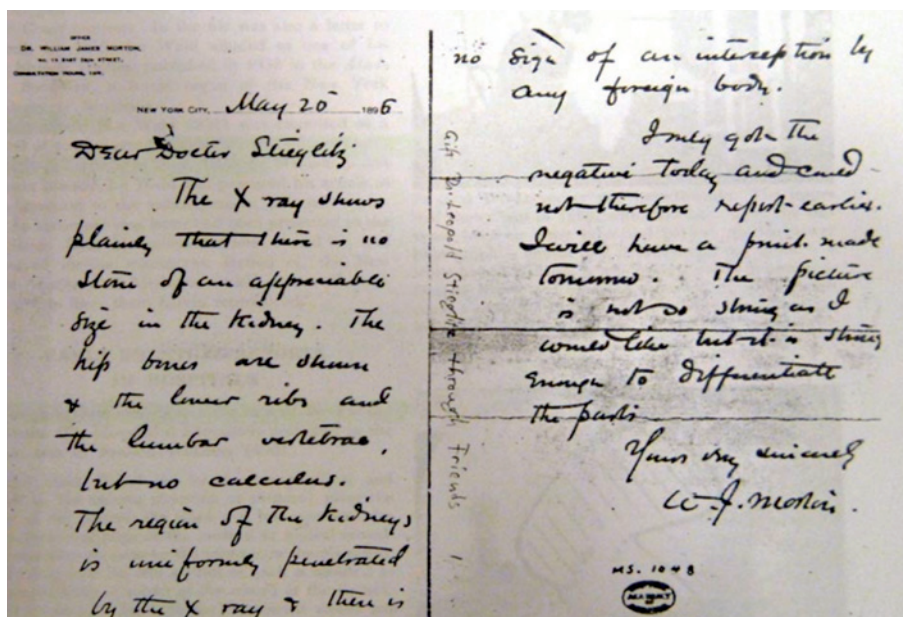 OFFICE
DR. WILLIAM JAMES MORTON,
NO. 19 EAST 28TH STREET,
CONSULTATION HOURS,
NEW YORK CITY, May 20 1896
Dear Docter Stieglitz
The X ray shows
plainly that there is no
stone of an appreciable
size in the kidney. The
hip bones are shown
& the lower ribs and
the lumbar vertebrae,
but no calculus.
The region of the kidneys
is uniformly penetrated
by the X ray & there is
no sign of an interception by
any foreign body.
I only got the
negative today and could
not therefore report earlier.
I will have a print made
tomorrow. The picture
is not so strong as I
would like but it is strong
enough to differentiate
the parts
Yours very sincerely
W. J. Morton.
Gift Dr. Leopold Stieglitz through Friends
MS. 1048